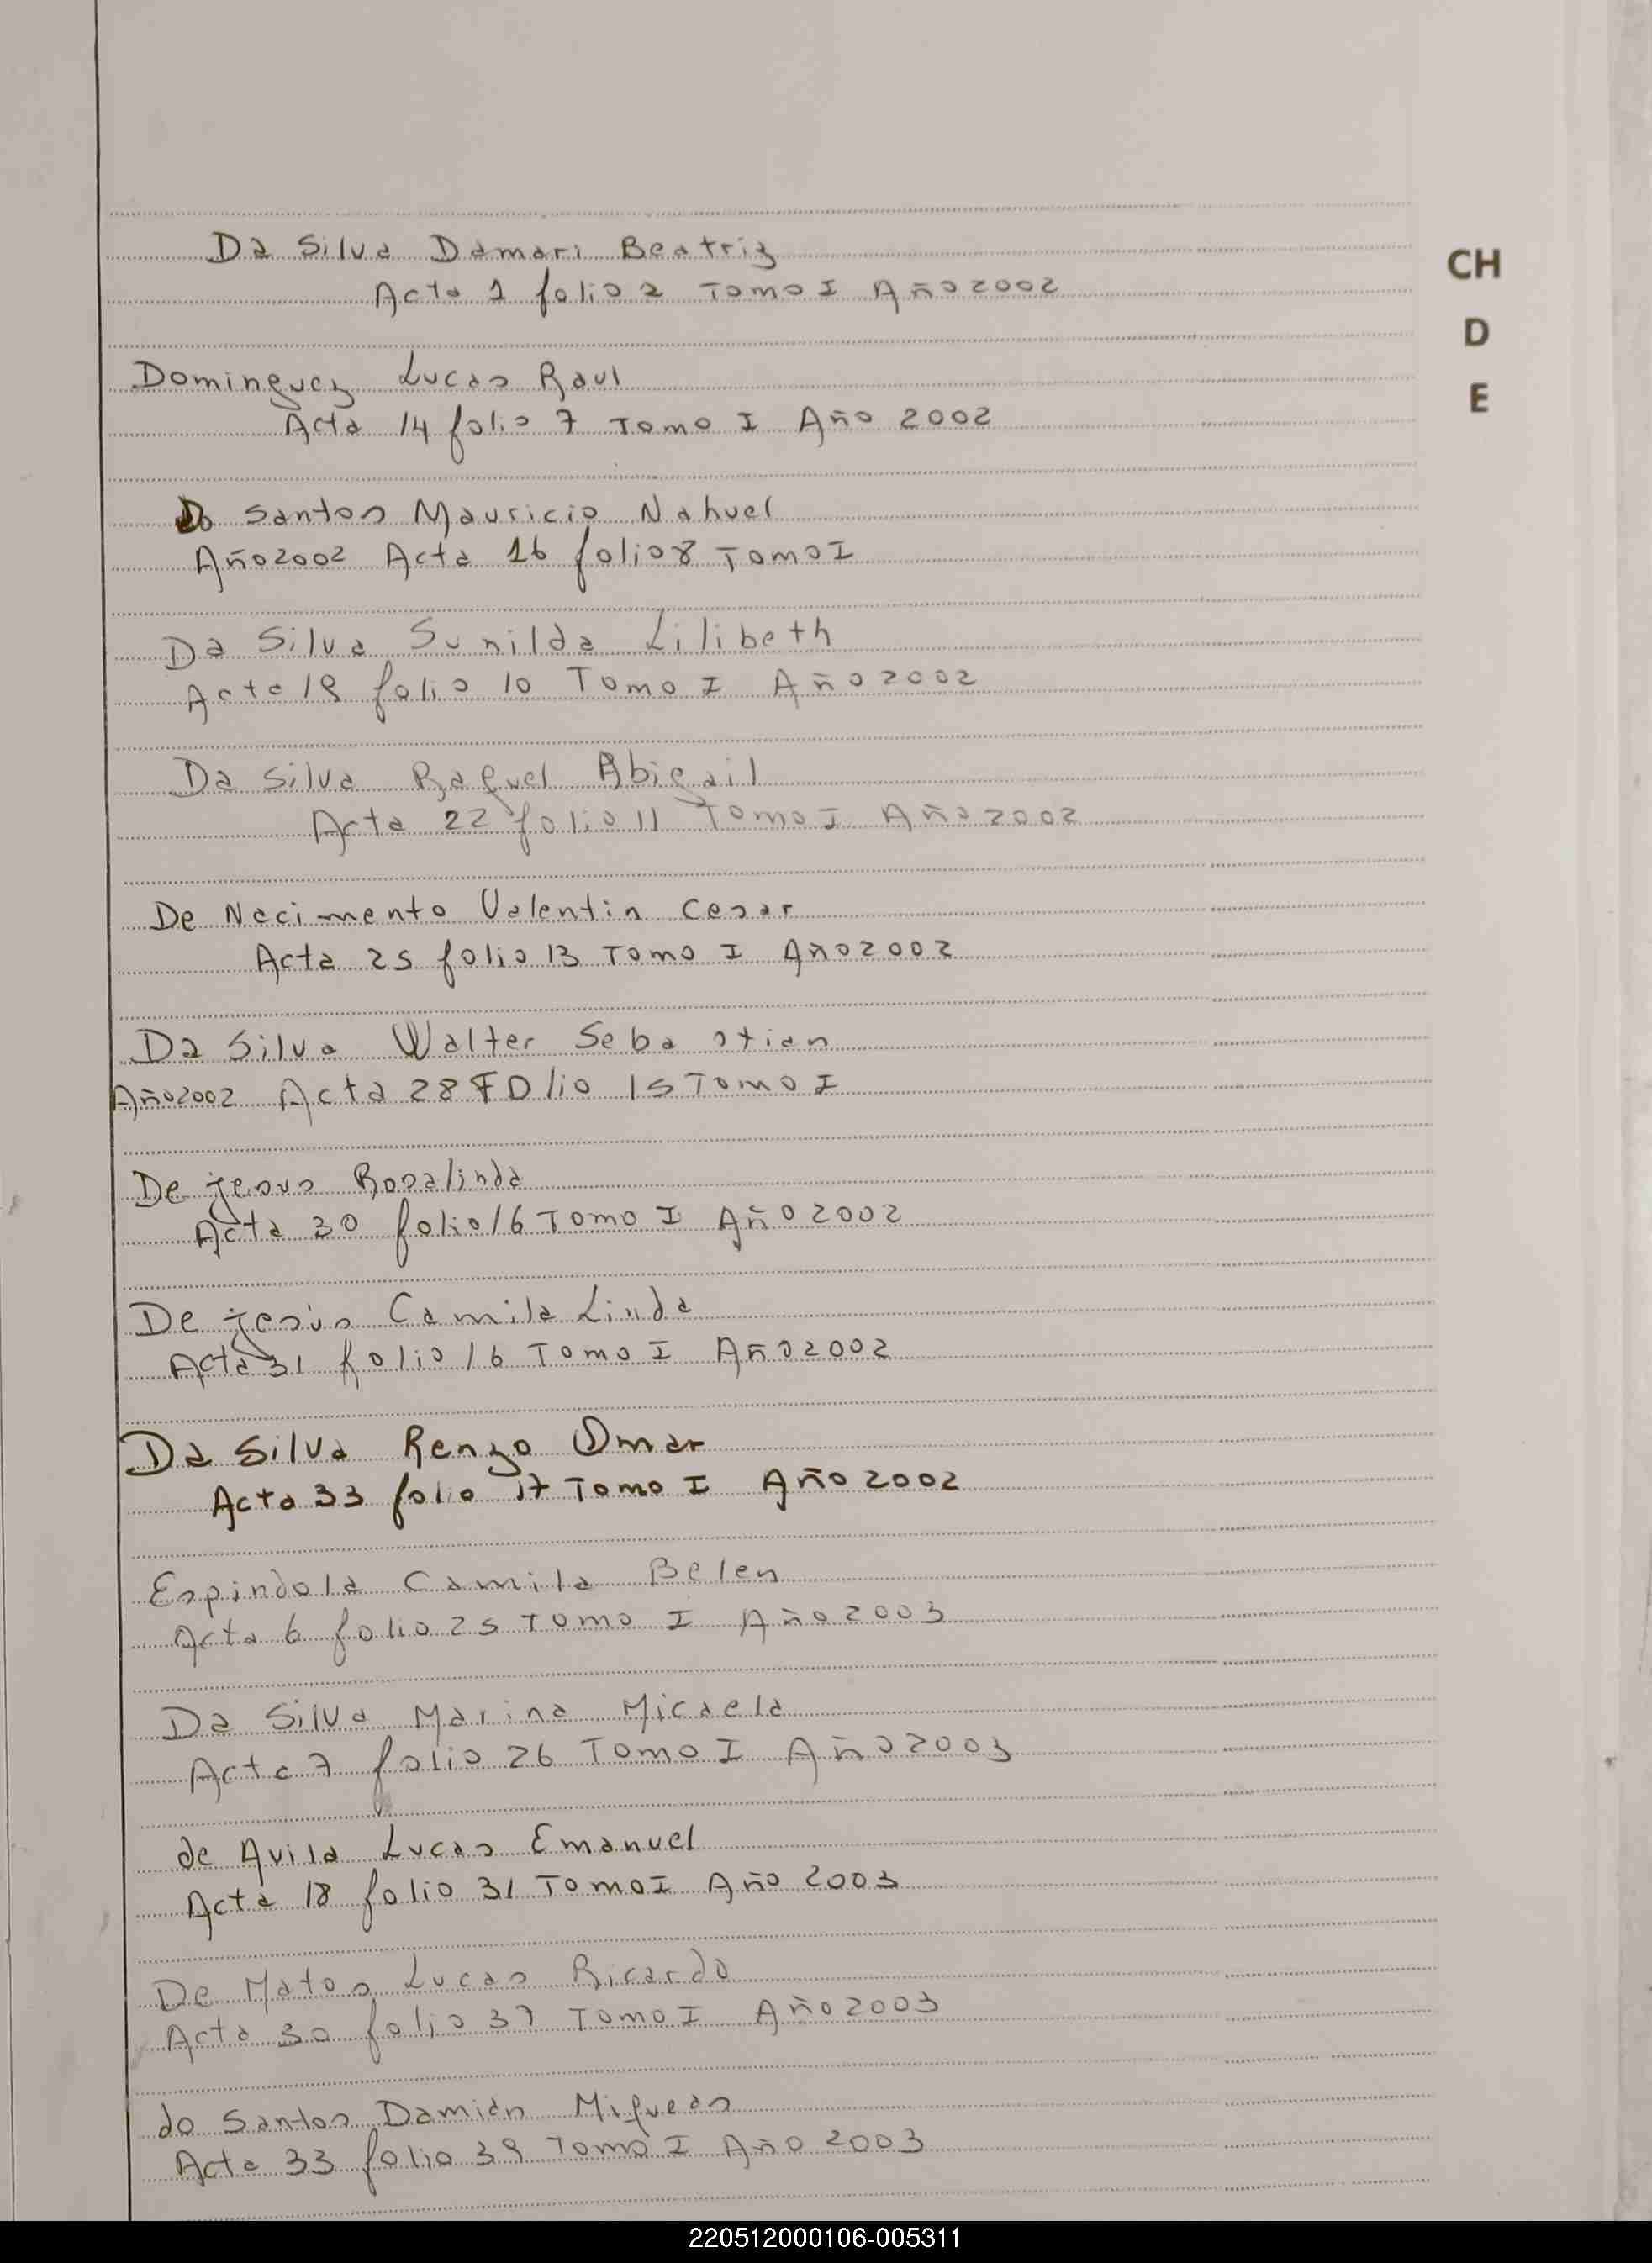 Da Silva Damari Beatriz
Acta 1 folio 2 Tomo I Año 2002
CH
D
E
Dominguez Lucas Raul
Acta 14 folio 7 Tomo I Año 2002
Do Santos Mauricio Nahuel
Año 2002 Acta 16 folio 8 Tomo I
Da Silva Sunilda Lilibeth
Acta 19 folio 10 Tomo I Año 2002
Da Silva Raquel Abigail
Acta 22 folio 11 Tomo I Año 2002
De Nacimento Valentin Cesar
Acta 25 folio 13 Tomo I Año 2002
Da Silva Walter Sebastian
Año 2002 Acta 28 FOlio 15 Tomo I
De jesus Rosalinda
Acta 30 folio 16 Tomo I Año 2002
De jesús Camila Linda
Acta 31 folio 16 Tomo I Año 2002
Da Silva Renzo Omar
Acta 33 folio 17 Tomo I Año 2002
Espindola Camila Belen
Acta 6 folio 25 Tomo I Año 2003
Da Silva Marina Micaela
Acta 7 folio 26 Tomo I Año 2003
de Avila Lucas Emanuel
Acta 18 folio 31 Tomo I Año 2003
De Matos Lucas Ricardo
Acta 30 folio 37 Tomo I Año 2003
do Santos Damián Miqueas
Acta 33 folio 39 Tomo I Año 2003
220512000106-005311